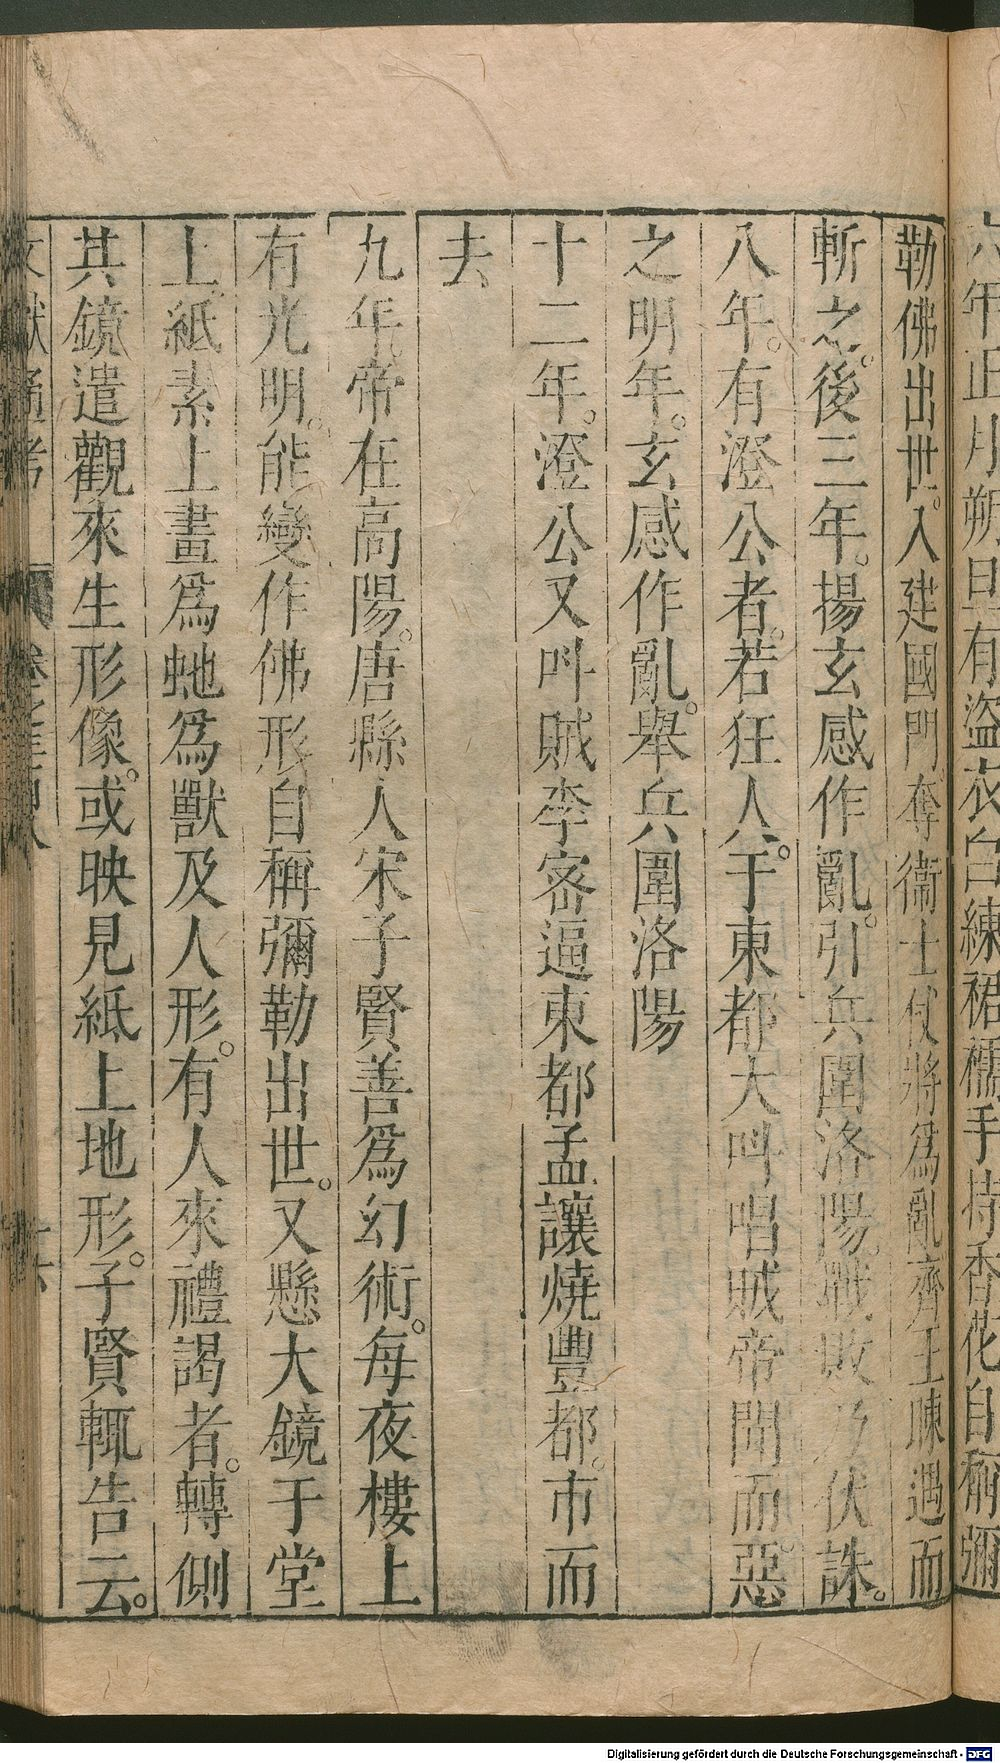 六年正月朔旦有盜衣白練裙襦手持香花自稱彌
勒佛出世。入建國門奪衞士仗將爲亂齊王暕遇而
斬之。後三年。揚玄感作亂。引兵圍洛陽。戰敗乃伏誅。
八年。有澄公者。若狂人。于東都大呌唱賊帝聞而。惡
之明年。玄感作亂。舉兵圍洛陽
十二年。澄公又呌賊李宻逼東都孟讓燒豐都。市而
去
九年。帝在高陽。唐縣人宋子賢善爲幻術。每夜樓上
有光明。能變作佛形自稱彌勒出世。又懸大鏡于堂
上。紙素上畫爲虵爲獸及人形。有人來禮謁者。轉側
其鏡遣觀來生形像。或映見紙上地形。子賢輒告云。
文獻通考
Digitalisierung gefördert durch die Deutsche Forschungsgemeinschaft - DFG